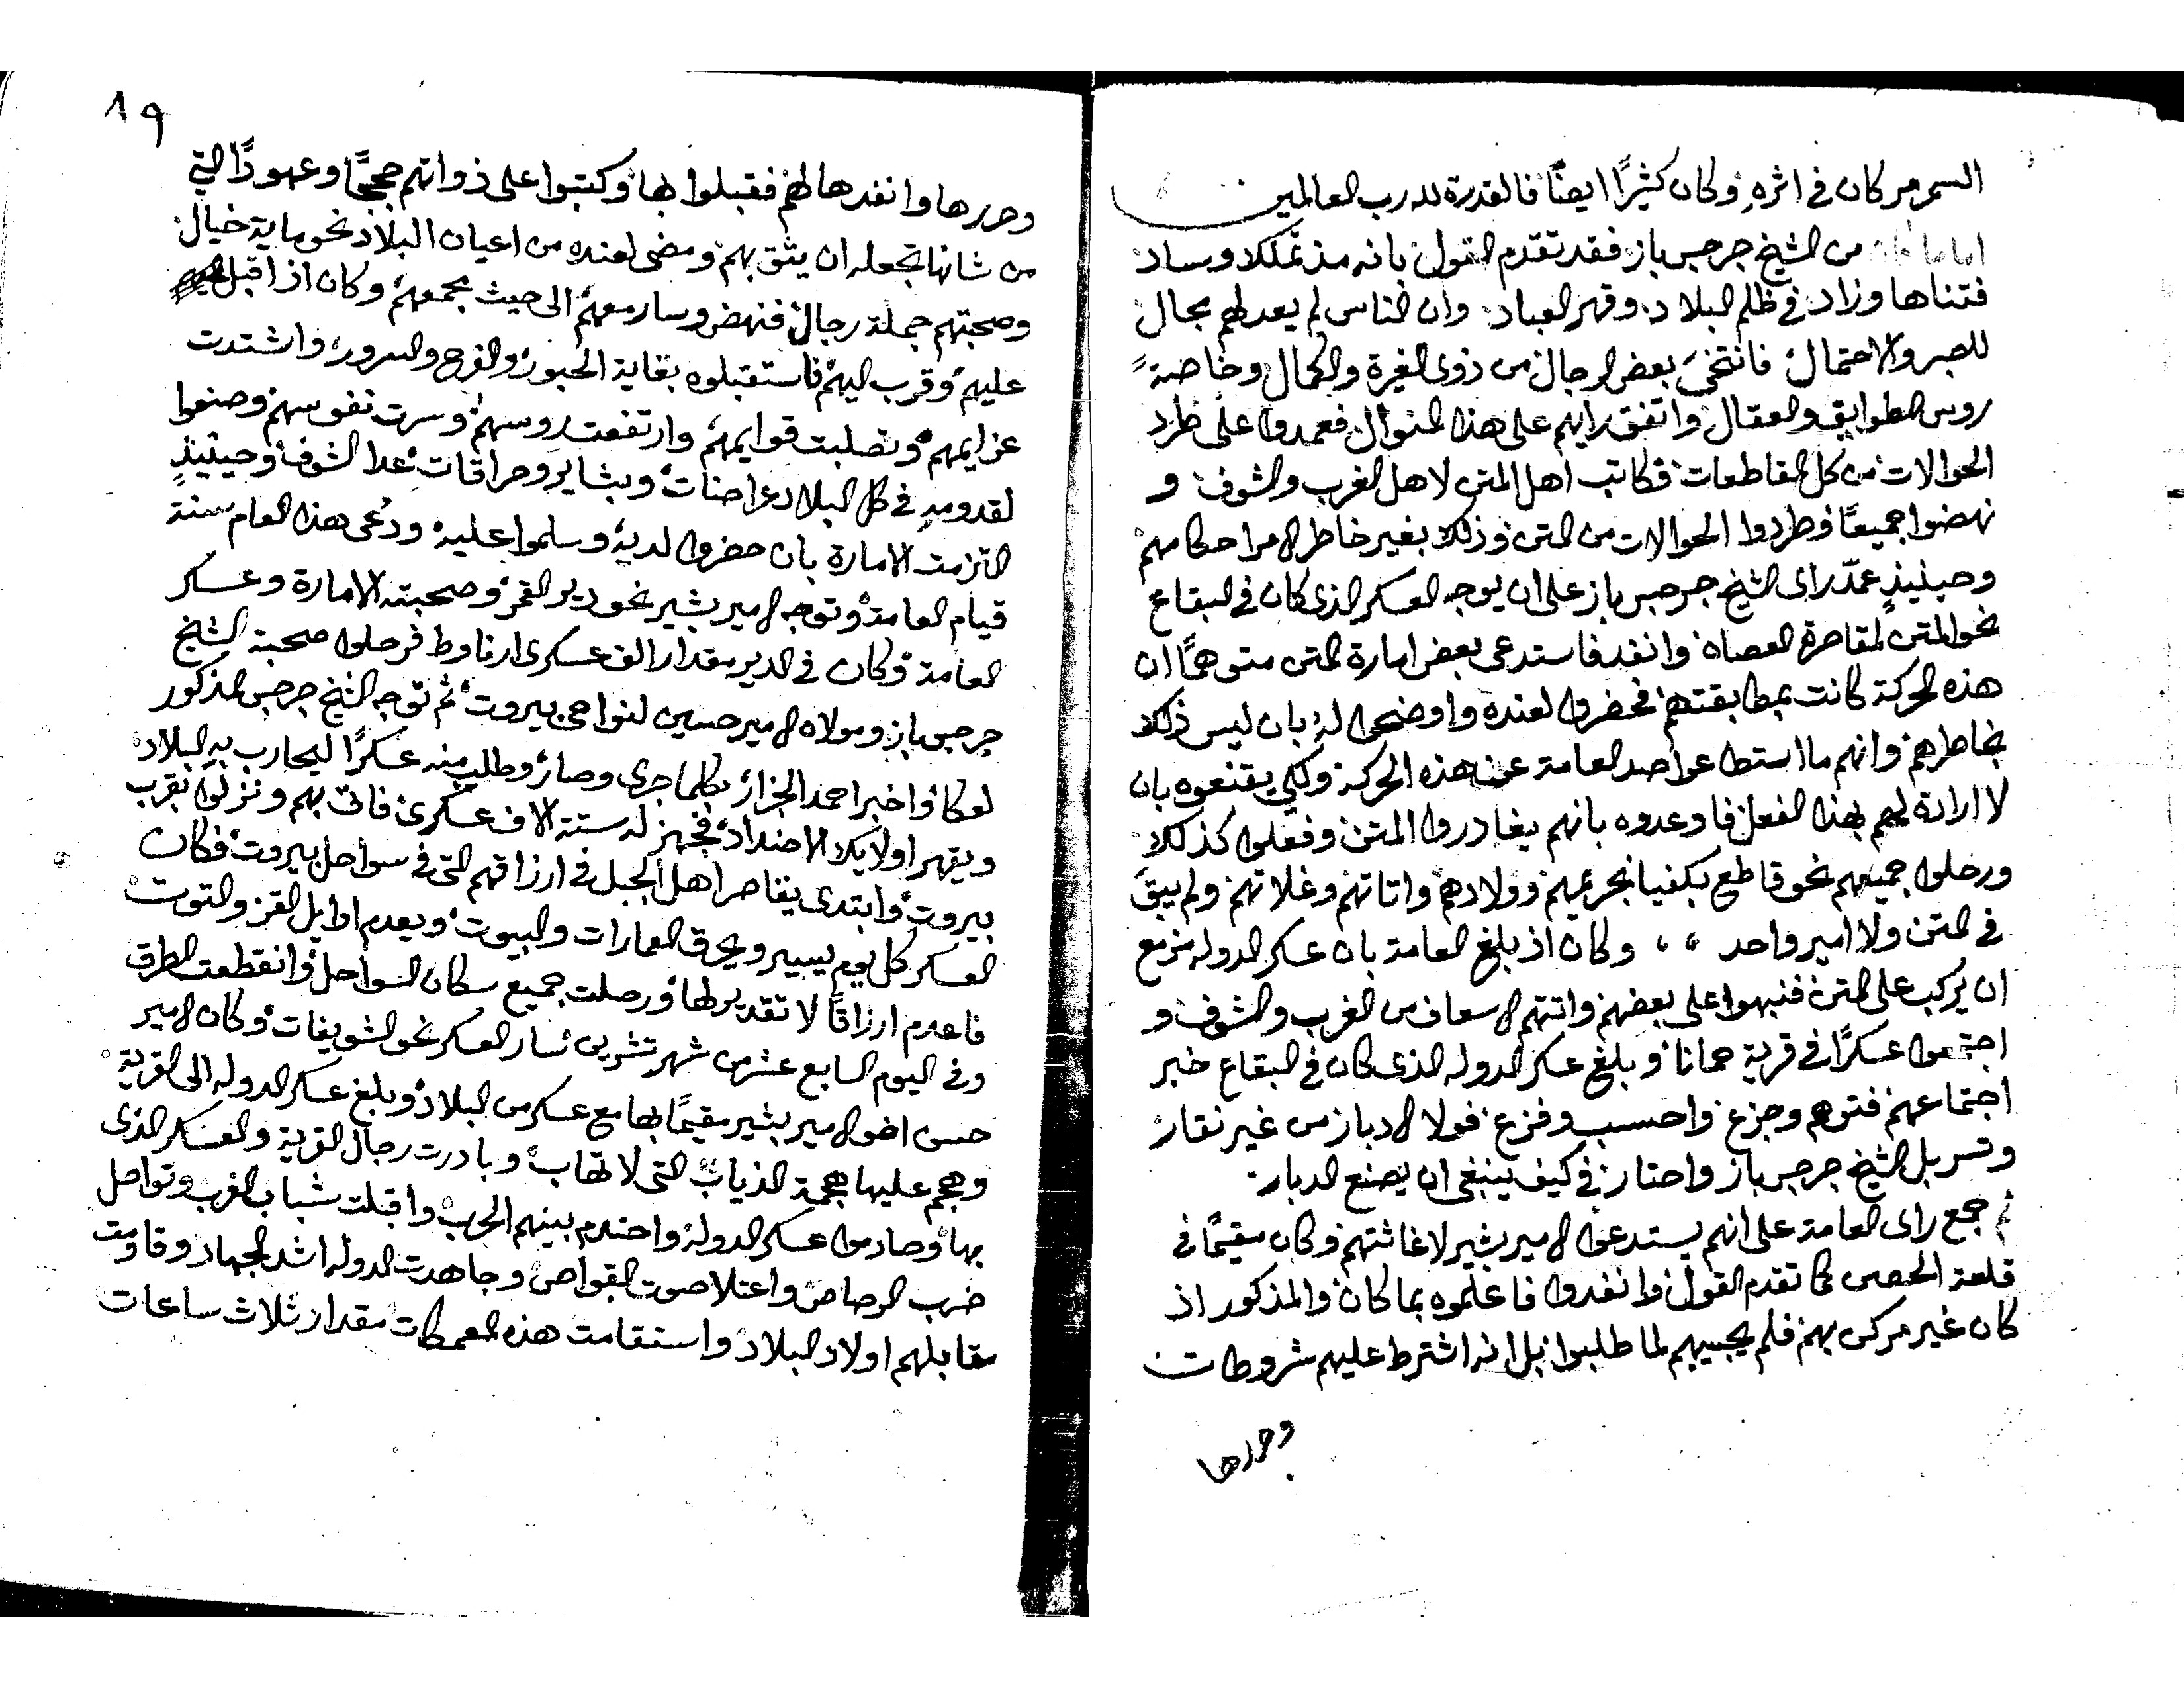 السرمر كان في اثره وكان كثيرًا ايضًا فالقدرة لله رب العالمين
من الشيخ جرجس باز فقد تقدم القول بانه مذ تملك وساد
فتناها وزاد في ظلم البلاد وقهر العباد وان الناس لم يعد لهم مجال
للصبر والاحتمال فانتخى بعض الرجال من ذوى الغيرة والكمال وخاصةً
روس الطوايق والعقال واتفق رايهم على هذا المنوال فعمدوا على طرد
الحوالات من كل المقاطعات فكاتب اهل المتن لاهل الغرب والشوف و
نهضوا جميعًا وطردوا الحوالات من المتن وذلك بغير خاطر الامرا حكامهم
وحينيذٍ عمد راى الشيخ جرجس باز على ان يوجه العسكر الذى كان في البقاع
نحو المتن لمقاصرة العصاه وانفد فاستدعى بعض امارة المتن متوهمًا ان
هذه الحركة كانت بمطابقتهم فحضروا لعنده واوضحوا له بان ليس ذلك
بخاطرهم وانهم ما استطاعوا صد العامة عن هذه الحركة ولكي يقنعوه بان
لا ارادة لهم بهذا الفعل فاوعدوه بانهم يغادروا المتن وفعلوا كذلك
ورحلوا جميعهم نحو قاطع بكفيا بحريمهم وولادهم واتاتهم وغلاتهم ولم يبقَ
في المتن ولا امير واحد ،، وكان اذ بلغ العامة بان عسكر الدوله مزمع
ان يركب على المتن فنبهوا على بعضهم واتتهم الاسعاف من الغرب والشوف و
اجتمعوا عسكرًا في قرية حمانا وبلغ عسكر الدوله الذى كان في البقاع خبر
اجتماعهم فتوهم وجزع واحسب وفزع فولا الادبار من غير نقار
وتسربل الشيخ جرجس باز واحتار في كيف ينبغى ان يصنع الدبار
ثم جمع راى العامة على انهم يستدعوا الامير بشير لاغاثتهم وكان مقيمًا في
قلعة الحصن كما تقدم القول وانفدوا فاعلموه بما كان والمذكور اذ
كان غير مركن بهم فلم يجيبهم لما طلبوا بل انه اشترط عليهم شروطات
وحررها
١٩
وحررها وانفدها لهم فقبلوا بها وكتبوا على ذواتهم حججًا وعهودًا التي
من شانها تجعله ان يثق بهم ومضى لعنده من اعيان البلاد نحو ماية خيال
وصحبتهم جملة رجال فنهض وسار معهم الى حيث مجمعهم وكان اذ اقبل
عليهم وقرب اليهم فاستقبلوه بغاية الحبور والفرح والسرور واشتدت
عزايمهم وتصلبت قوايمهم وارتفعت روسهم وسرت نفوسهم وصنعوا
لقدومه في كل البلاد عراضات وبشاير وحراقات عدا الشوف وحينيذٍ
التزمت الامارة بان حضروا لديه وسلموا عليه ودُعى هذا العام سنة
قيام العامة وتوجه الامير بشير نحو دير القمر وصحبته الامارة وعسكر
العامة وكان في الدير مقدار الف عسكرى ارناوط فرحلوا صحبة الشيخ
جرجس باز ومولاه الامير حسين لنواحى بيروت ثم توجه الشيخ جرجس المذكور
لعكا واخبر احمد الجزار بكلما جرى وصار وطلب منه عسكرًا ليحارب به البلاد
ويقهر اولايك الاضداد فجهز له ستة الاف عسكرى فاتى بهم ونزلوا بقرب
بيروت وابتدى يقاصر اهل الجبل في ارزاقهم التى في سواحل بيروت فكان
العسكر كل يوم يسير ويحرق العمارات والبيوت ويعدم اوايل القز والتوت
فاعدم ارزاقًا لا تقدير لها ورحلت جميع سكان السواحل وانقطعت الطرق
وفي اليوم السابع عشر من شهر تشرين سار العسكر نحو الشويفات وكان الامير
حسن اخو الامير بشير مقيمًا بها مع عسكر من البلاد وبلغ عسكر الدوله الى القرية
وهجم عليها هجمة الذياب التى لا تهاب وبادرت رجال القرية والعسكر الذى
بها وصادموا عسكر الدولة واحتدم بينهم الحرب واقبلت شباب الغرب وتواصل
ضرب الرصاص واعتلا صوت القواص وجاهدت الدوله اشد الجهاد وقاومت
مقابلهم اولاد البلاد واستقامت هذه المعمكات مقدار ثلاث ساعات